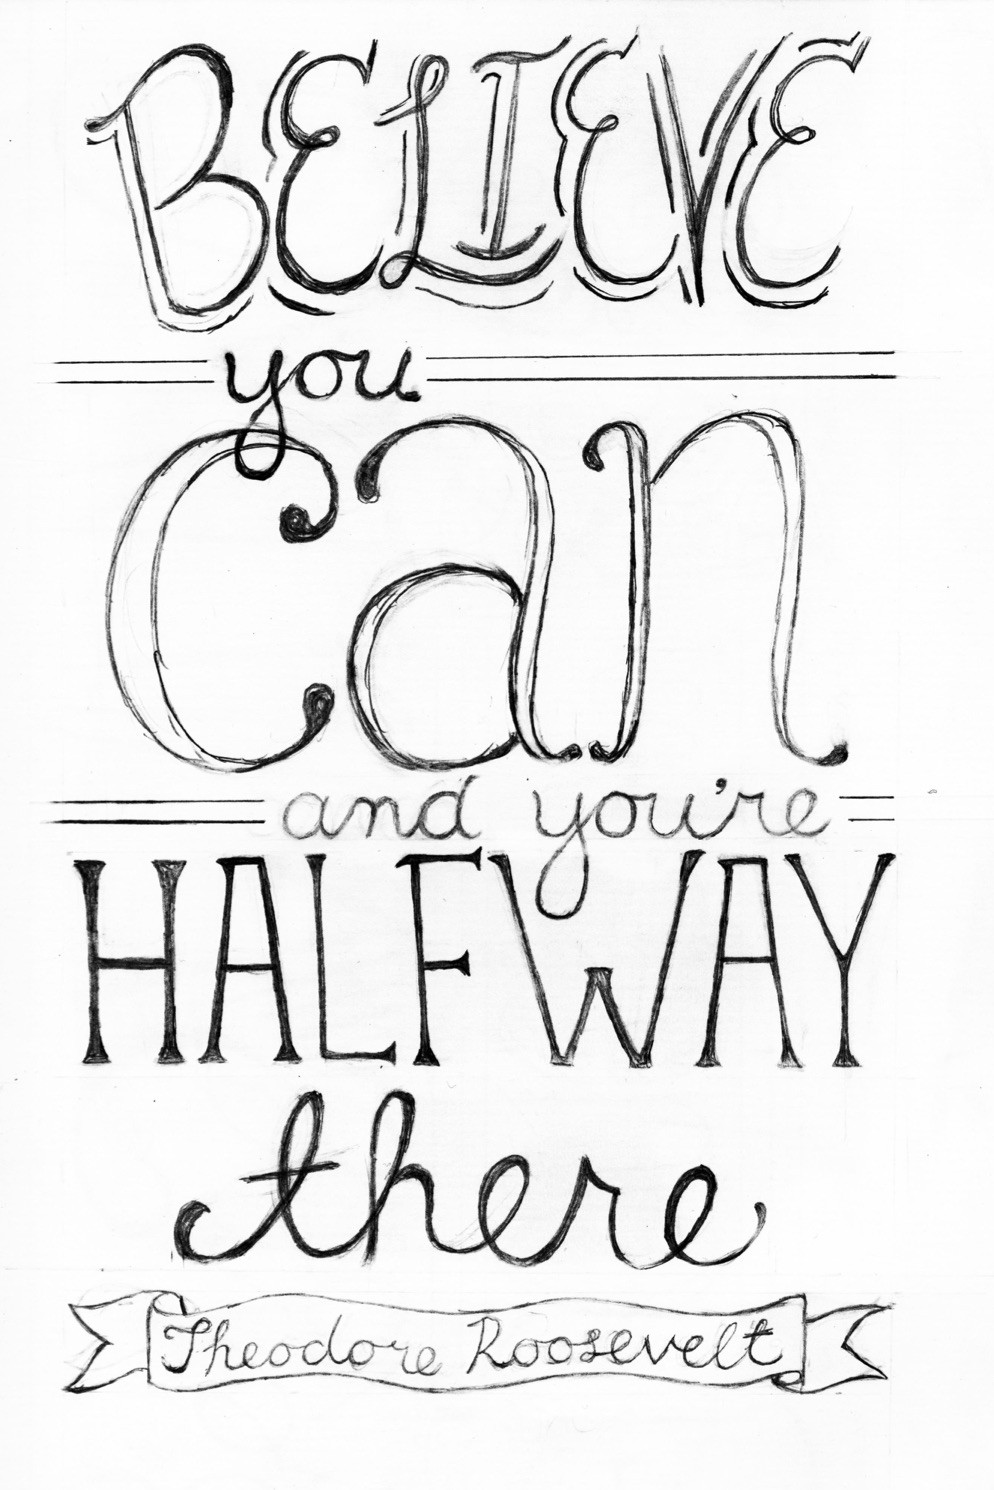 BELIEVE
you
can
and you're
HALFWAY
there
Theodore Roosevelt